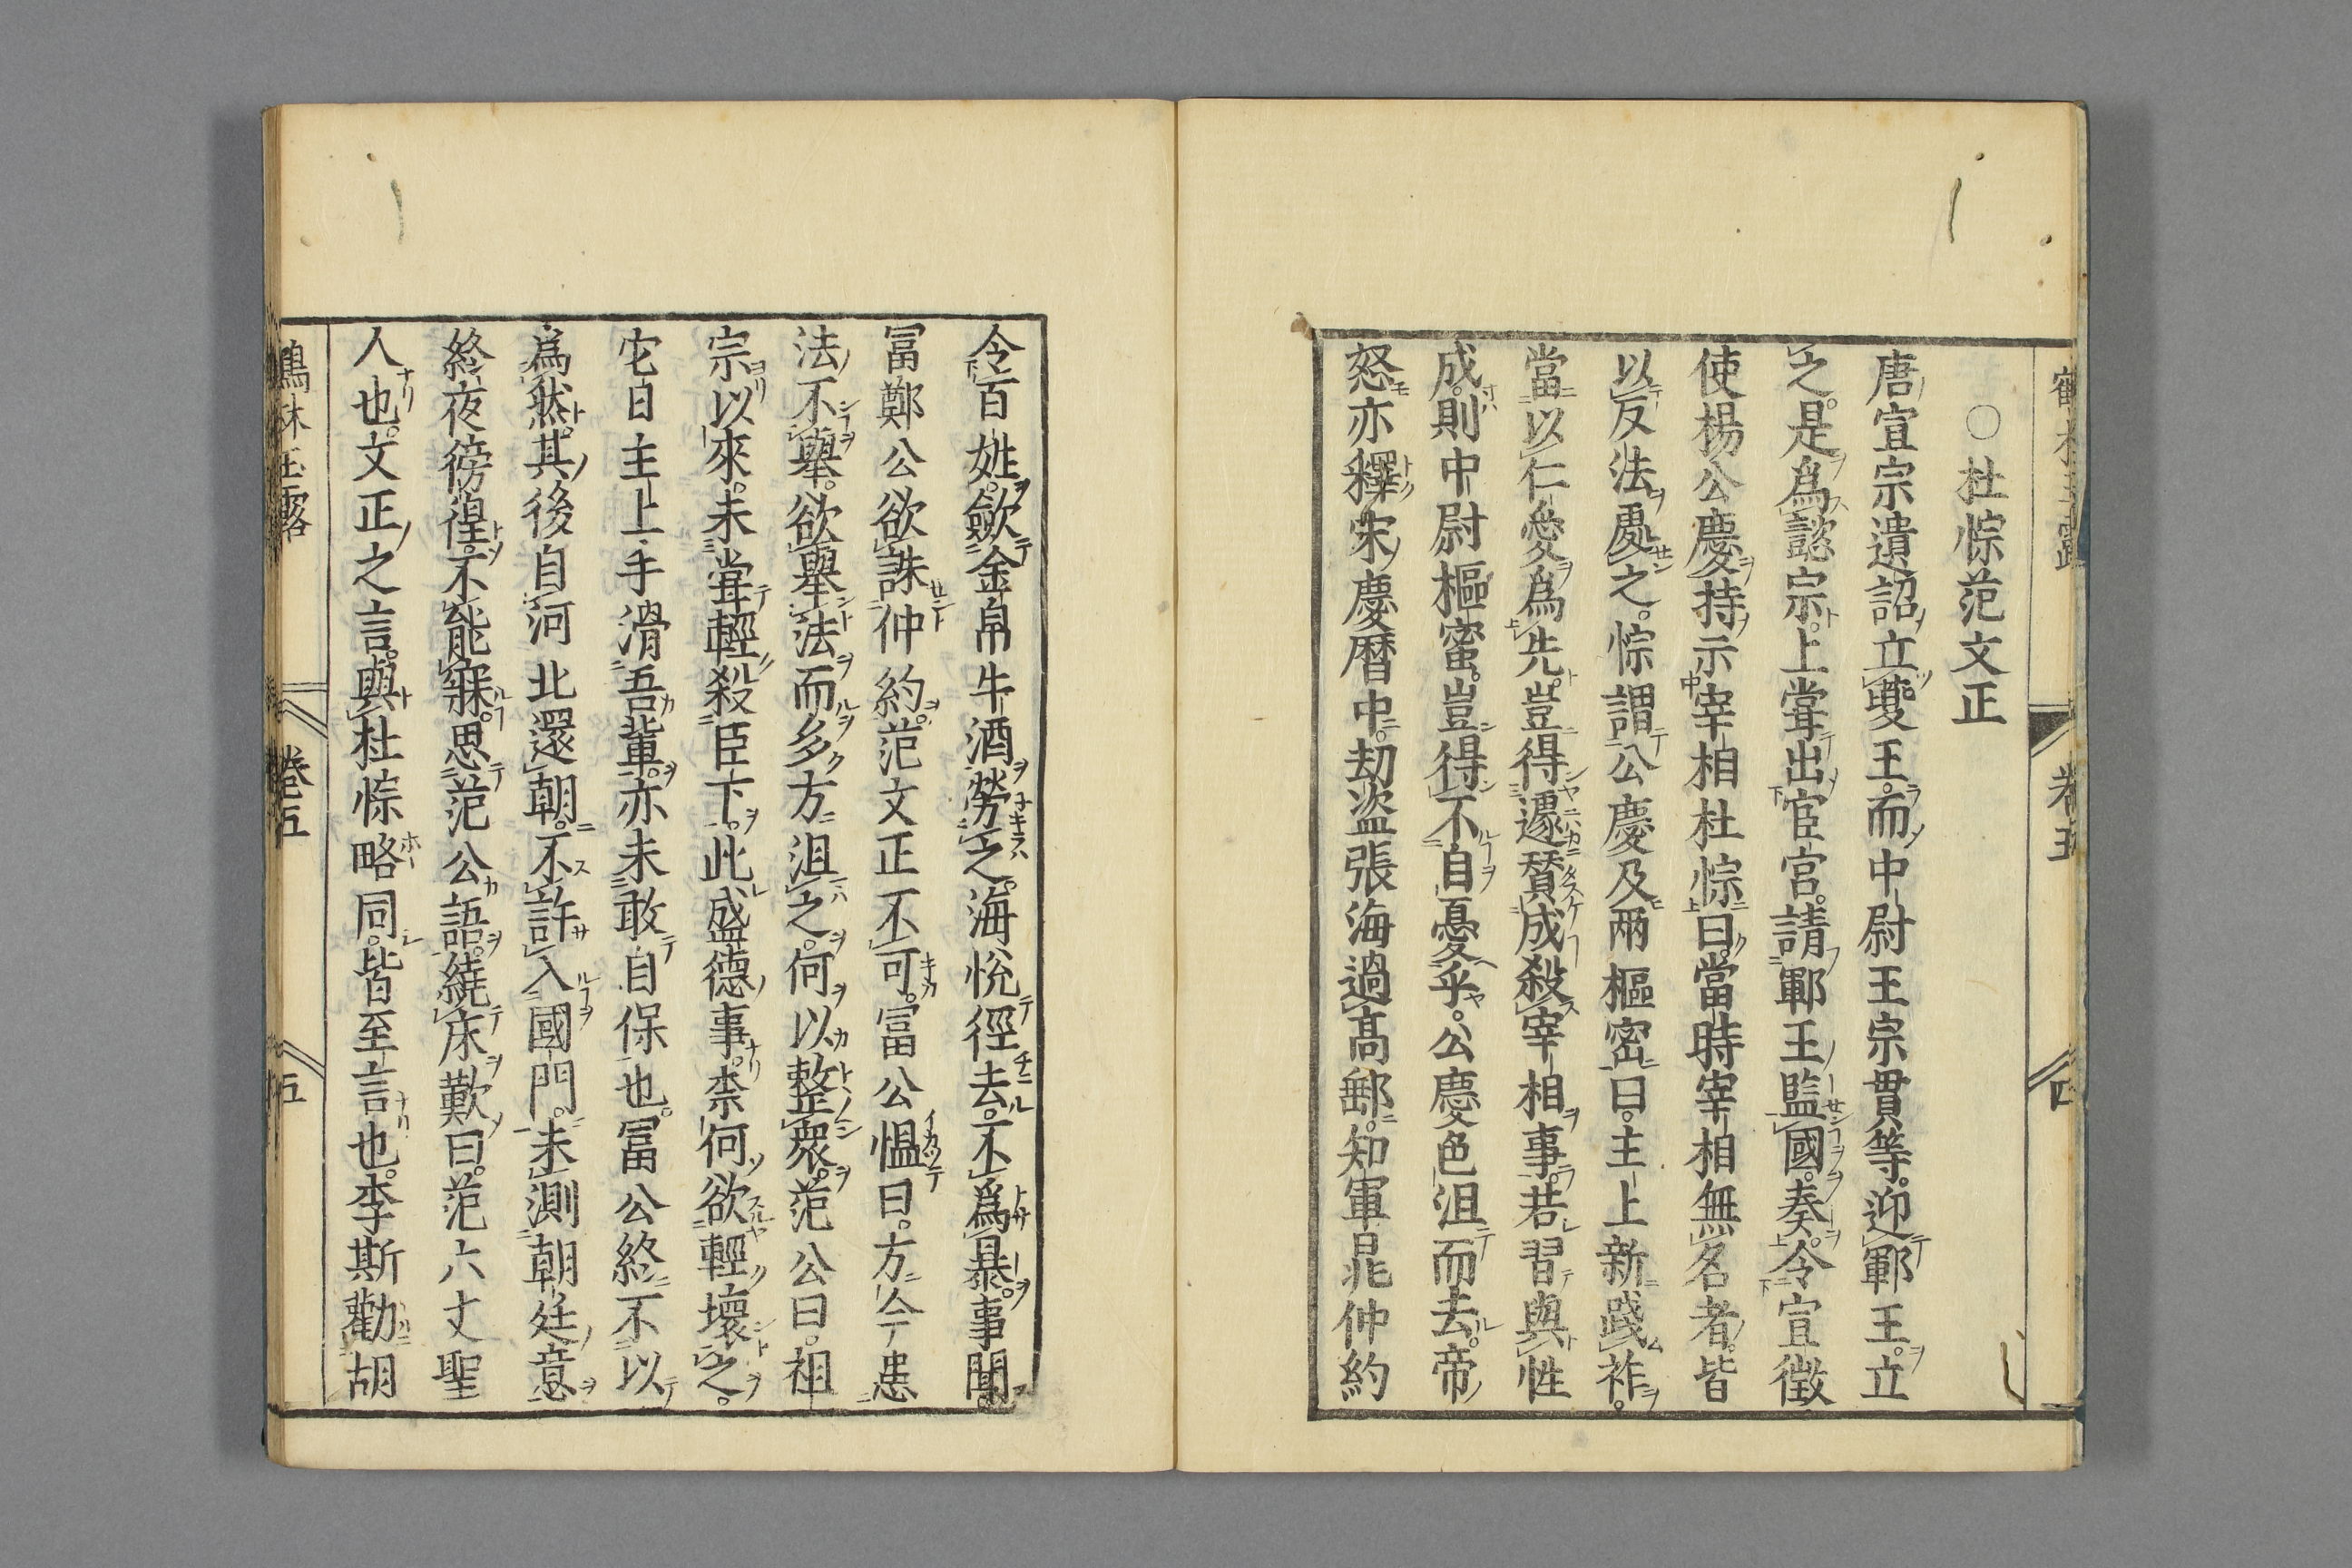 鶴林玉露 卷五 四
○杜悰范文正
唐宣宗遺詔立夔王。而中尉王宗貫等。迎鄆王。立
之。是爲懿宗。上甞出宦官。請鄆王監國。奏。令宣徴
使楊公慶持示宰相杜悰曰。當時宰相無名者。皆
以反法處之。悰謂公慶及兩樞密曰。主上新踐祚。
當以仁愛爲先。豈得遽賛成殺宰相事。若習與性
成。則中尉樞蜜。豈得不自憂乎。公慶色沮而去。帝
怒亦釋。宋慶曆中。劫盜張海過高郵。知軍晁仲約
令百姓。歛金帛牛酒勞之。海悅徑去。不爲暴。事聞。
冨鄭公欲誅仲約。范文正不可。冨公慍曰。方今患
法不擧。欲擧法而多方沮之。何以整衆。范公曰。祖
宗以來。未甞輕殺臣下。此盛德事。柰何欲輕壞之。
它日主上手滑。吾輩。亦未敢自保也。冨公終不以
爲然。其後自河北還朝。不許入國門。未測朝廷意
終夜徬徨。不能寐。思范公語。繞床歎曰。范六丈聖
人也。文正之言。與杜悰略同。皆至言也。李斯勸胡
鶴林玉露 卷五 五